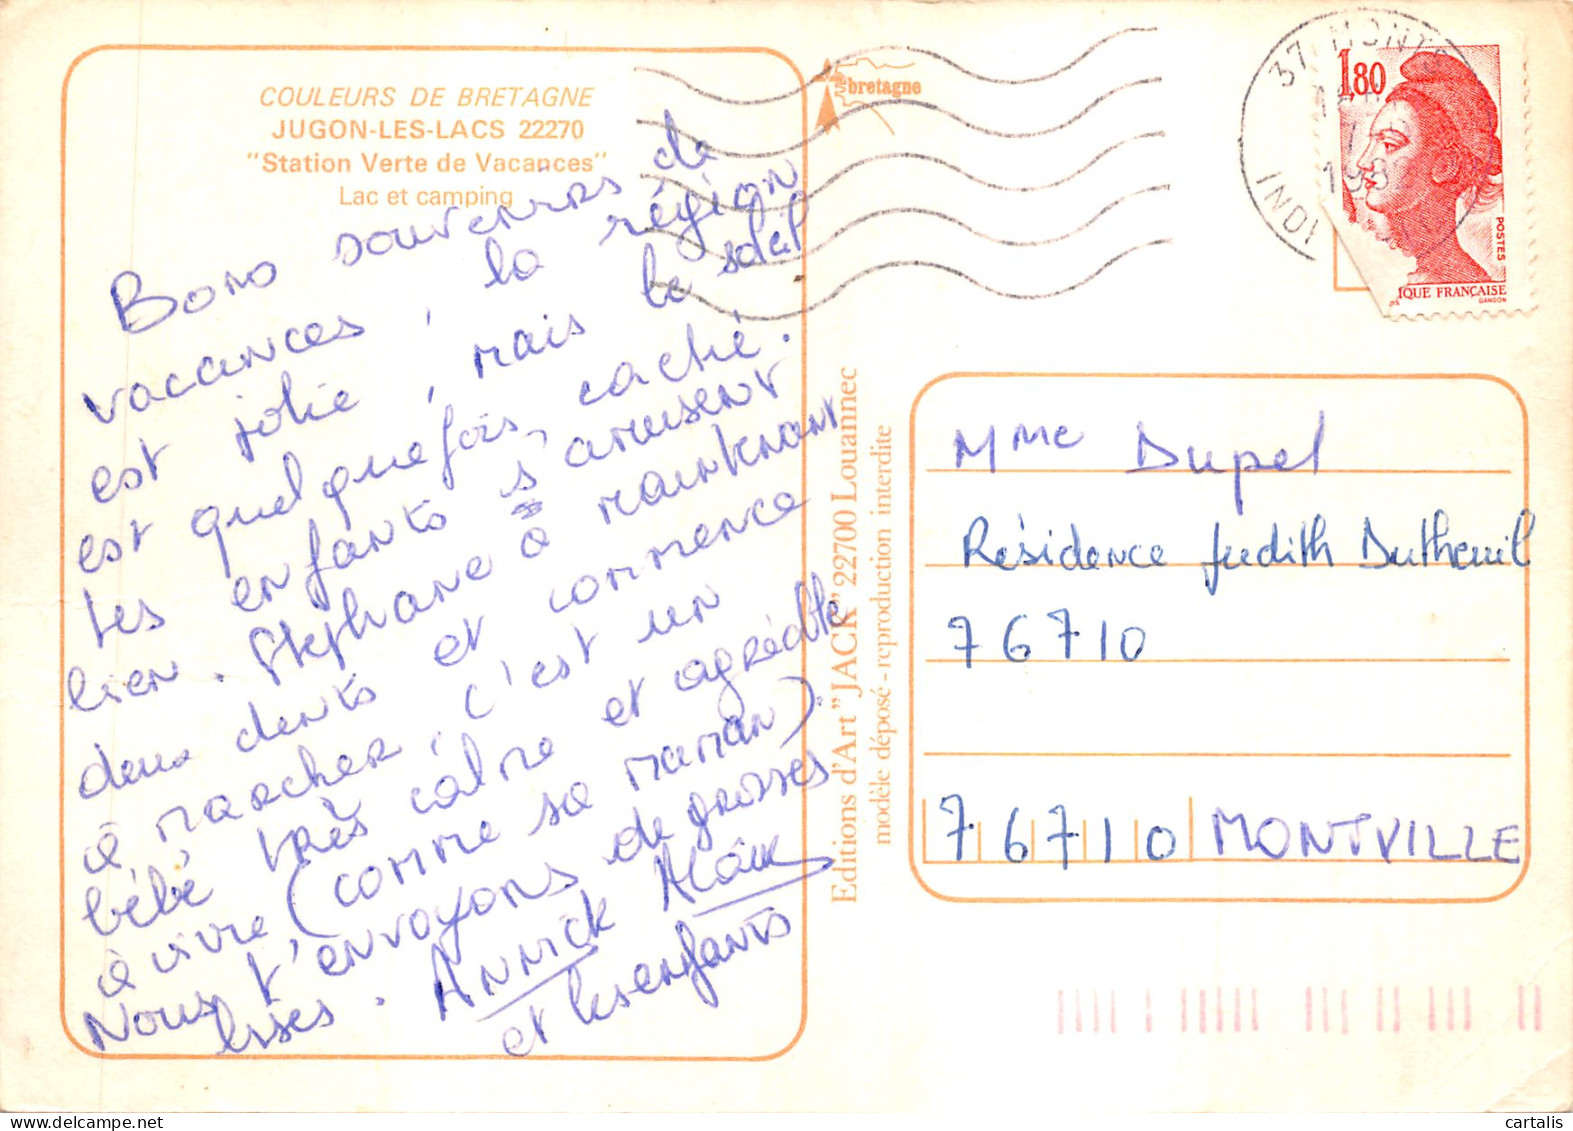 COULEURS DE BRETAGNE
JUGON-LES-LACS 22270
"Station Verte de Vacances"
Lac et camping
Bons souvenirs de
vacances, la région
est jolie, mais le soleil
est quelquefois caché.
Les enfants s'amusent
bien. Stéphane a maintenant
deux dents et commence
à marcher, c'est un
bébé très calme et agréable
à vivre (comme sa maman).
Nous t'envoyons de grosses
bises. Annick Alain
et les enfants
bretagne
Editions d'Art "JACK" 22700 Louannec
modèle déposé - reproduction interdite
37 MONT
INDR
1,80
POSTES
IQUE FRANÇAISE
GANDON
Mme Dupel
Résidence Judith Dutheuil
76710
76710 MONTVILLE
cartalis